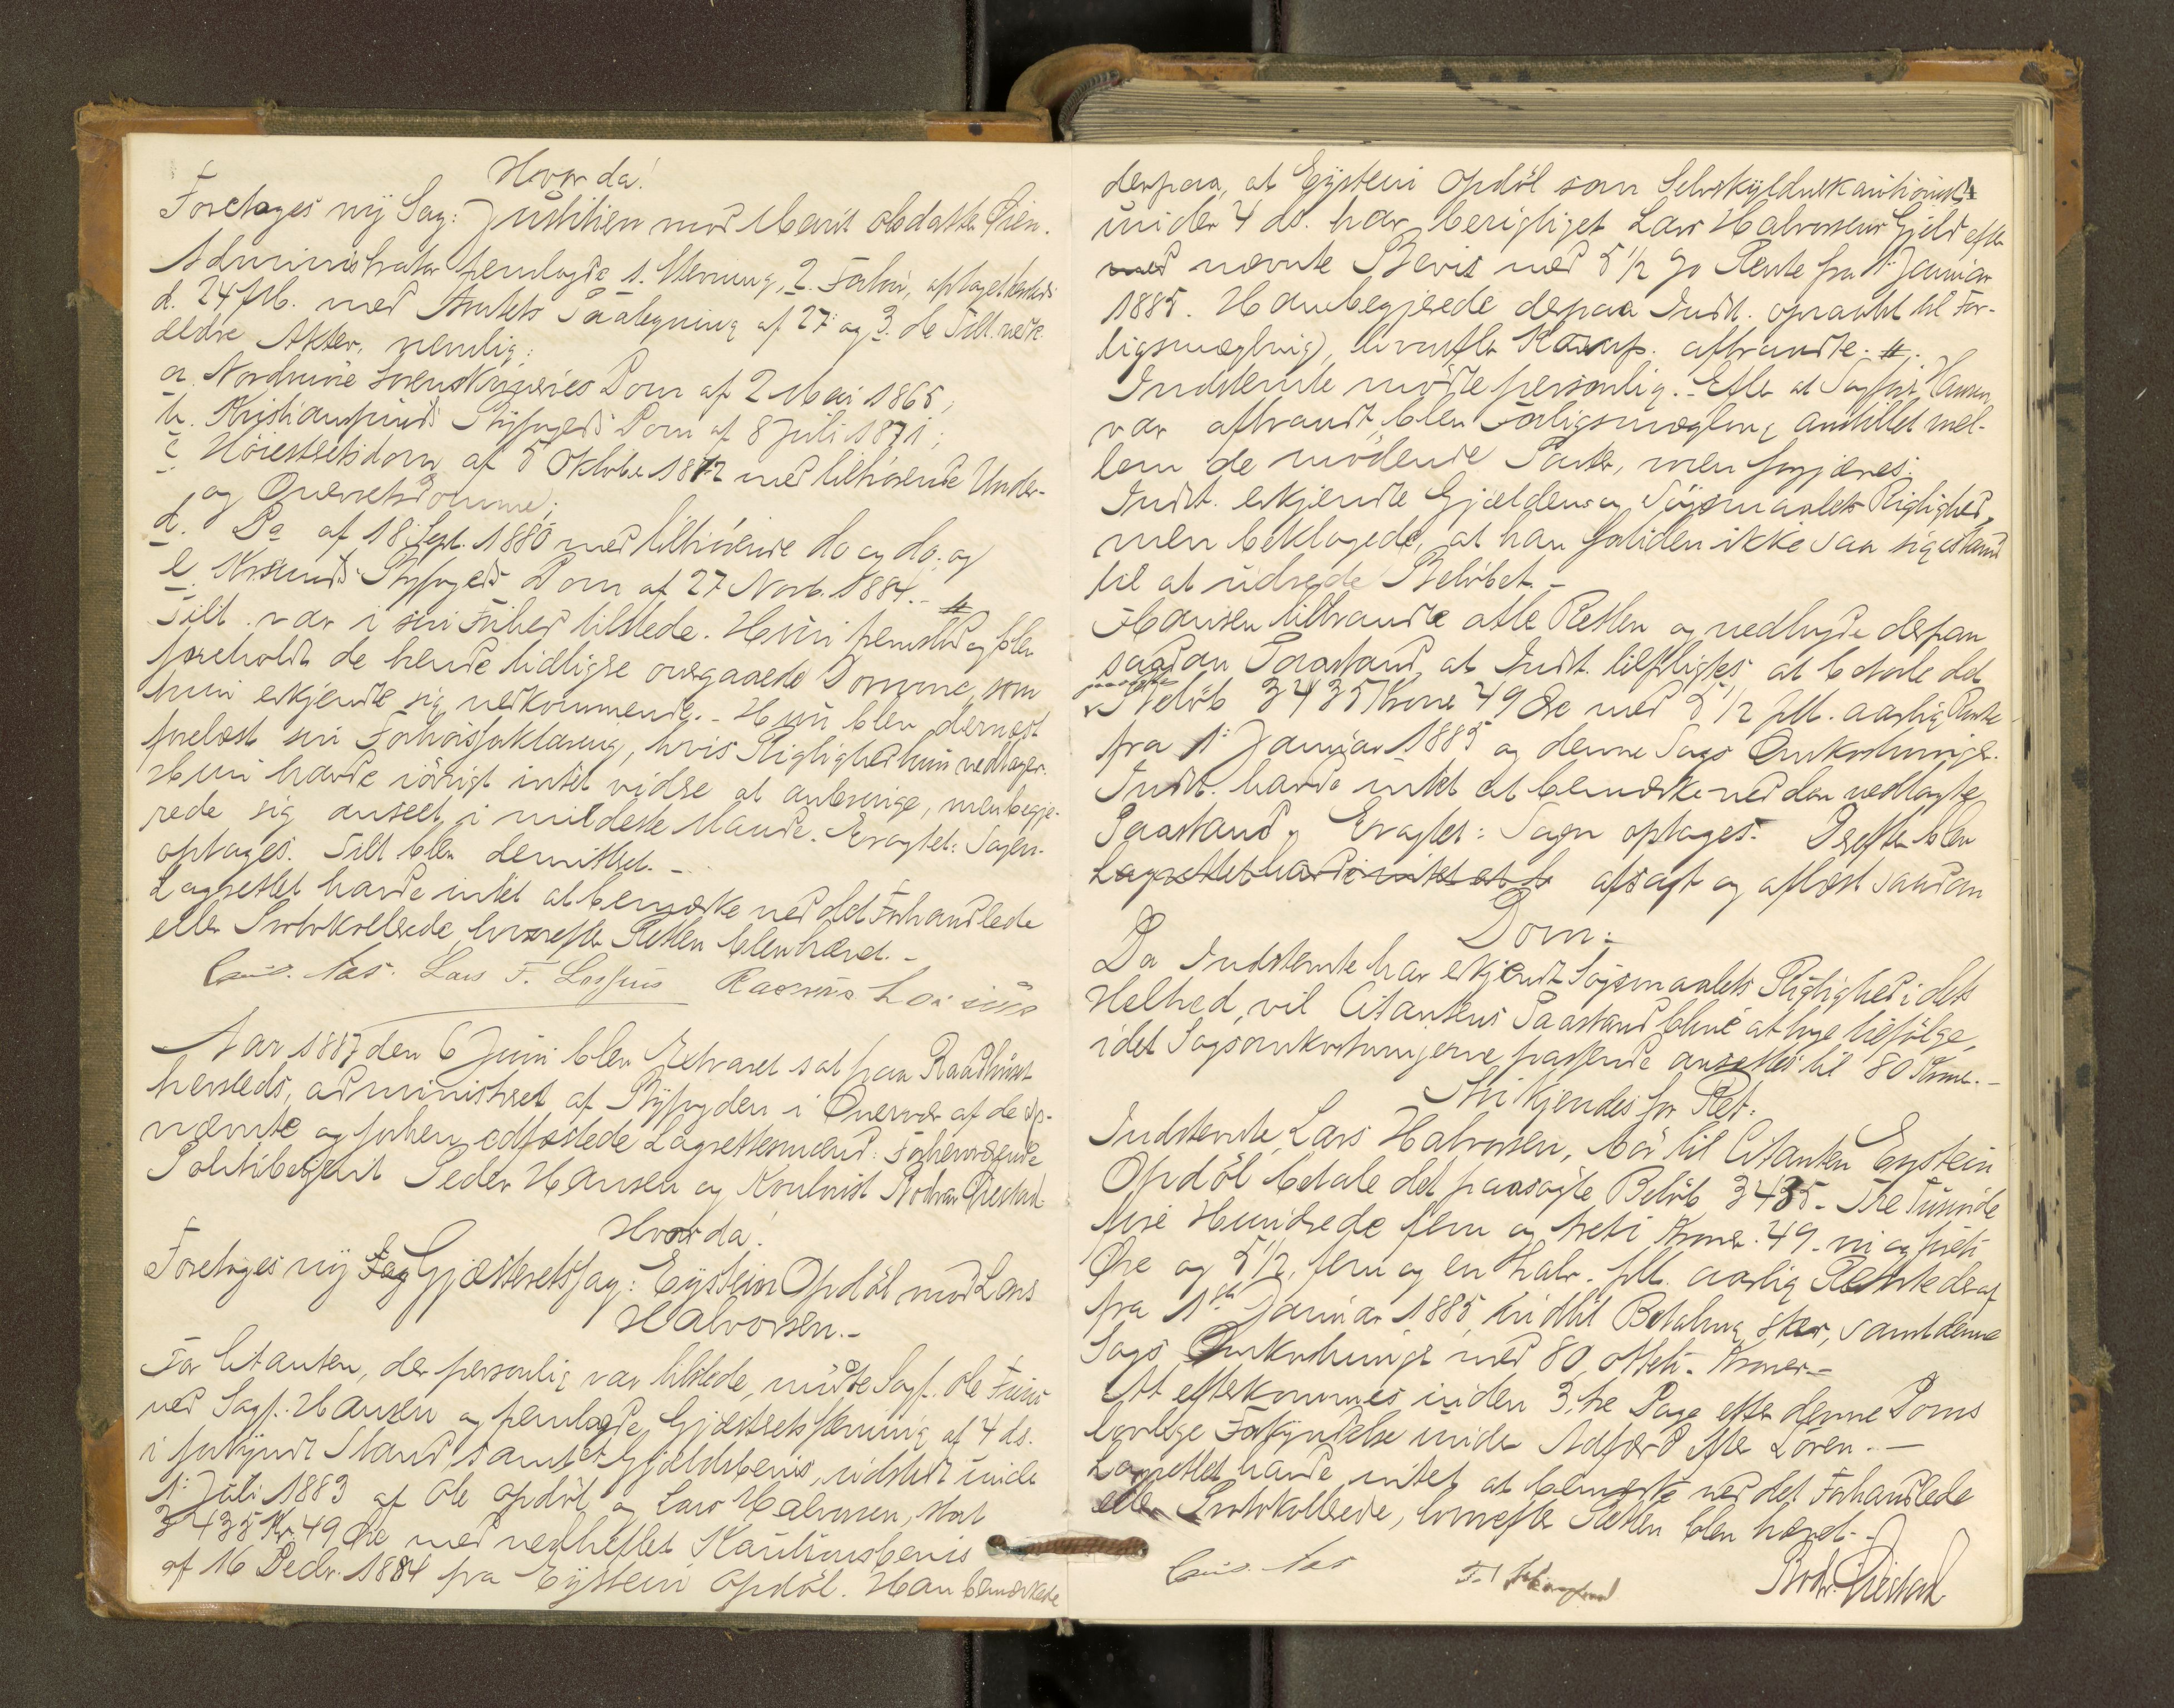 Hvorda!
Foretoges ny Sag: Justitien mod Marit Olsdatter Øien.
Administrator fremlagde 1. Stevning, 2. Forhør, optaget hersteds
d. 24 f.M. med Amtets Paategning af 27: og 3. de Tilt. vedk.
ældre Akter, nemlig:
a. Nordmøre Sorenskriveries Dom af 2 Mai 1865;
b. Kristiansunds Byfogeds Dom af 8 Juli 1871;
c. Høiesteretsdom af 5 Oktober 1872 med tilhørende Under-
og Overretsdomme;
d. Do af 18 Sept. 1880 med tilhørende do og do; og
e. Krsunds Byfogeds Dom af 27 Novb. 1884. #
Tilt. var i sin Frihed tilstede. Hun fremstod og blev
foreholdt de hende tidligere overgaaede Domme, som
hun erkjendte sig vedkommende. Hun blev dernæst
forelæst sin Forhørsforklaring, hvis Rigtighed hun vedtager.
Hun havde iøvrigt intet videre at anbringe, men begjæ-
rede sig anseet i mildeste Maade. Eragtet: Sagen
optages. Tilt. blev demitteret. -
Lagrettet havde intet at bemærke ved det Forhandlede
eller Protokollerede, hvorefter Retten blev hævet. -
Aas. Lars F. Rasmus
Aar 1887 den 6 Juni blev Extraret sat paa Raadhuset
hersteds, administreret af Byfogden i Overvær af de op-
nævnte og forhen edfæstede Lagrettesmænd: Forhenværende
Politibetjent Peder Hansen og Kontorist Brodvar Diestad.
Hvorda!
Foretoges ny Sag Gjæsteretssag: Eystein Opdøl mod Lars
Halvorsen. -
For Citanten, der personlig var tilstede, mødte Sagf. Ole
ved Sagf. Hansen og fremlagde Gjæsteretsstevning af 4 ds.
i forkyndt Stand, samt et Gjældsbevis, udstedt under
1: Juli 1883 af Ole Opdøl og Lars Halvorsen, stort
3435 Kr. 49 Øre med vedheftet Kautionsbevis
af 16 Decbr. 1884 fra Eystein Opdøl. Han bemærkede
derpaa, at Eystein Opdøl som Selvskyldnerkautionist
under 4 ds. har berigtiget Lars Halvorsens Gjeld efter
med nævnte Bevis med 5 1/2 % Rente fra 1: Januar
1885. Han begjærede derpaa Indst. opraabt til For-
ligsmægling, hvorefter aftraadte. #.
Indstevnte mødte personlig. - Efter at Sagfører Hansen
var aftraadt, blev Forligsmægling anstillet mel-
lem de mødende Parter, men forgjæves.
Indst. erkjendte Gjælden og Søgsmaalets Rigtighed,
men beklagede, at han fortiden ikke saa sig istand
til at udrede Beløbet. -
Hansen tiltraadte atter Retten og nedlagde derpaa
saadan Paastand, at Indst. tilpligtes at betale det
Beløb 3435 Kroner 49 Øre med 5 1/2 pCt. aarlig Rente
fra 1: Januar 1885 og denne Sags Omkostninger.
Indst. havde intet at bemærke ved den nedlagte
Paastand. Eragtet: Sagen optages. Derefter blev
Lagrettet havde intet at b afsagt og aflæst saadan
Dom:
Da Indstevnte har erkjendt Søgsmaalets Rigtighed i dets
Helhed, vil Citantens Paastand blive at tage tilfølge,
idet Sagsomkostningerne passende ansættes til 80 Kroner. -
Thi kjendes for Ret:
Indstevnte, Lars Halvorsen, bør til Citanten Eystein
Opdøl betale det paasøgte Beløb 3435 - Tre Tusinde
fire Hundrede fem og treti Kroner. 49 - ni og firti
Øre og 5 1/2, fem og en halv - pCt. aarlig Rente deraf
fra 1ste Januar 1885 indtil Betaling sker, samt denne
Sags Omkostninger med 80, otteti - Kroner. -
At efterkommes inden 3, tre Dage efter denne Doms
lovlige Forkyndelse under Adfærd efter Loven. -
Lagrettet havde intet at bemærke ved det Forhandlede
eller Protokollerede, hvorefter Retten blev hævet. -
Aas
Brodv. Diestad